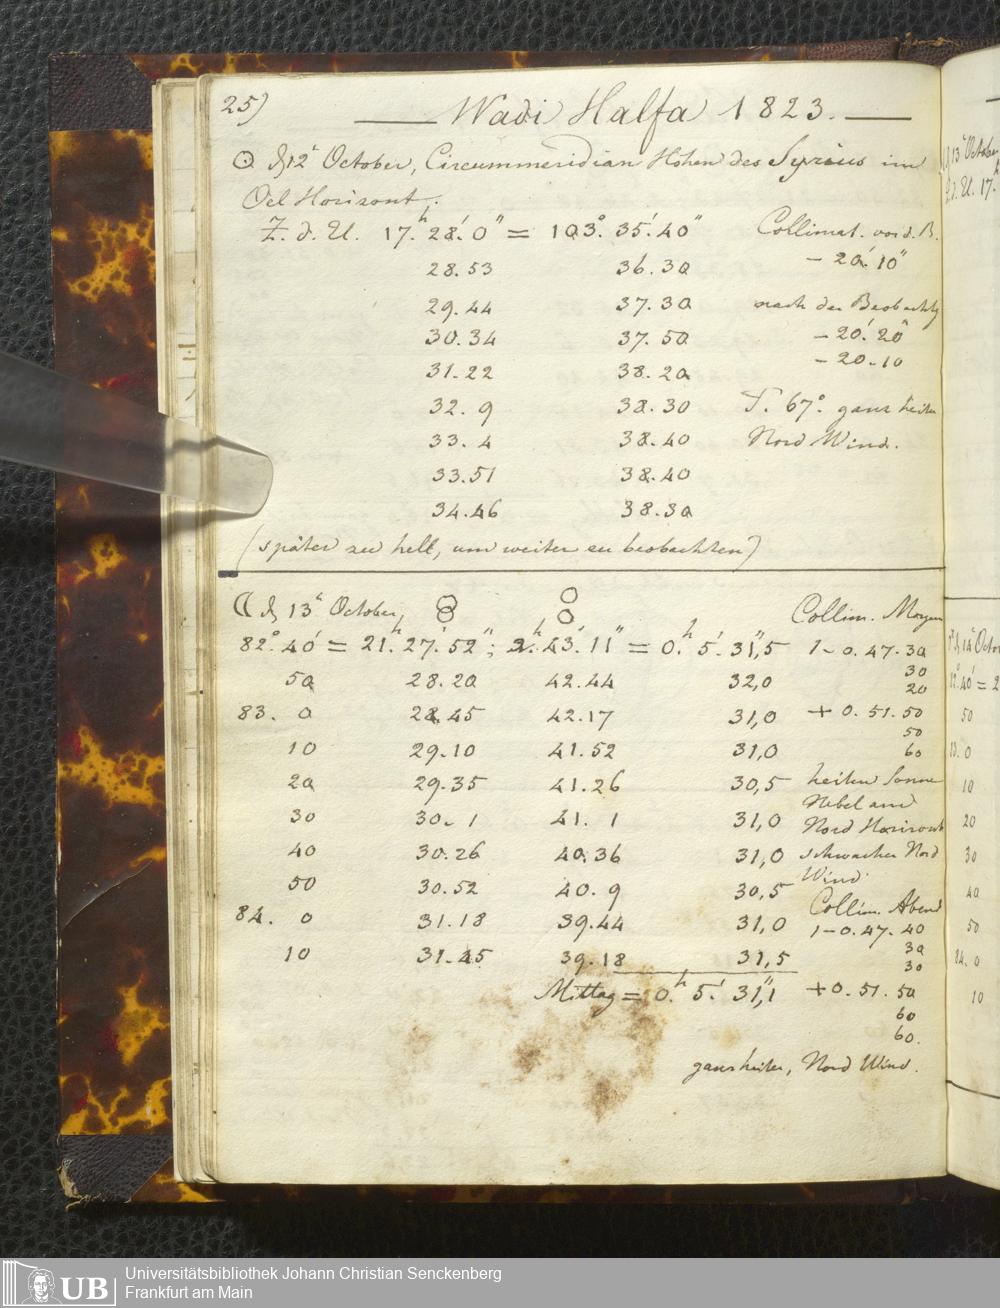 25)
Wadi Halfa 1823.
☉ d 12t October, Circummeridian Höhen des Syrius im
Oel Horizont.
Z. d. U. 17.h 28.' 0" = 103.° 35.' 40" Collimat. vor d. B.
28.53 36.30 - 20.' 10"
29.44 37.30 nach der Beobachtg
30.34 37.50 - 20.' 20"
31.22 38.20 - 20.10
32. 9 38.30 T. 67°. ganz heiter
33. 4 38.40 Nord Wind.
33.51 38.40
34.46 38.30
(später zu hell, um weiter zu beobachten)
☾ d 13t October,
Collim. Morgen
82.° 40' = 21.h 27.' 52"; 2.h 43.' 11" = 0.h 5.' 31",5 1- 0.47.30
50 28.20 42.44 32,0 30
20
83. 0 28.45 42.17 31,0 + 0.51.50
50
10 29.10 41.52 31,0 60
20 29.35 41.26 30,5 heitere Sonne
Nebel am
30 30. 1 41. 1 31,0 Nord Horizont
40 30.26 40.36 31,0 schwacher Nord
Wind
50 30.52 40. 9 30,5 Collim. Abend
84. 0 31.18 39.44 31,0 1-0.47.40
30
10 31.45 39.18 31,5 30
Mittag = 0.h 5.' 31",1 +0.51.50
60
60.
ganz heiter, Nord Wind.
13t October
Z. d. U. 17.
d 14t Octo
82.° 40' = 2
50
83. 0
10
20
30
40
50
84. 0
10
UB
Universitätsbibliothek Johann Christian Senckenberg
Frankfurt am Main